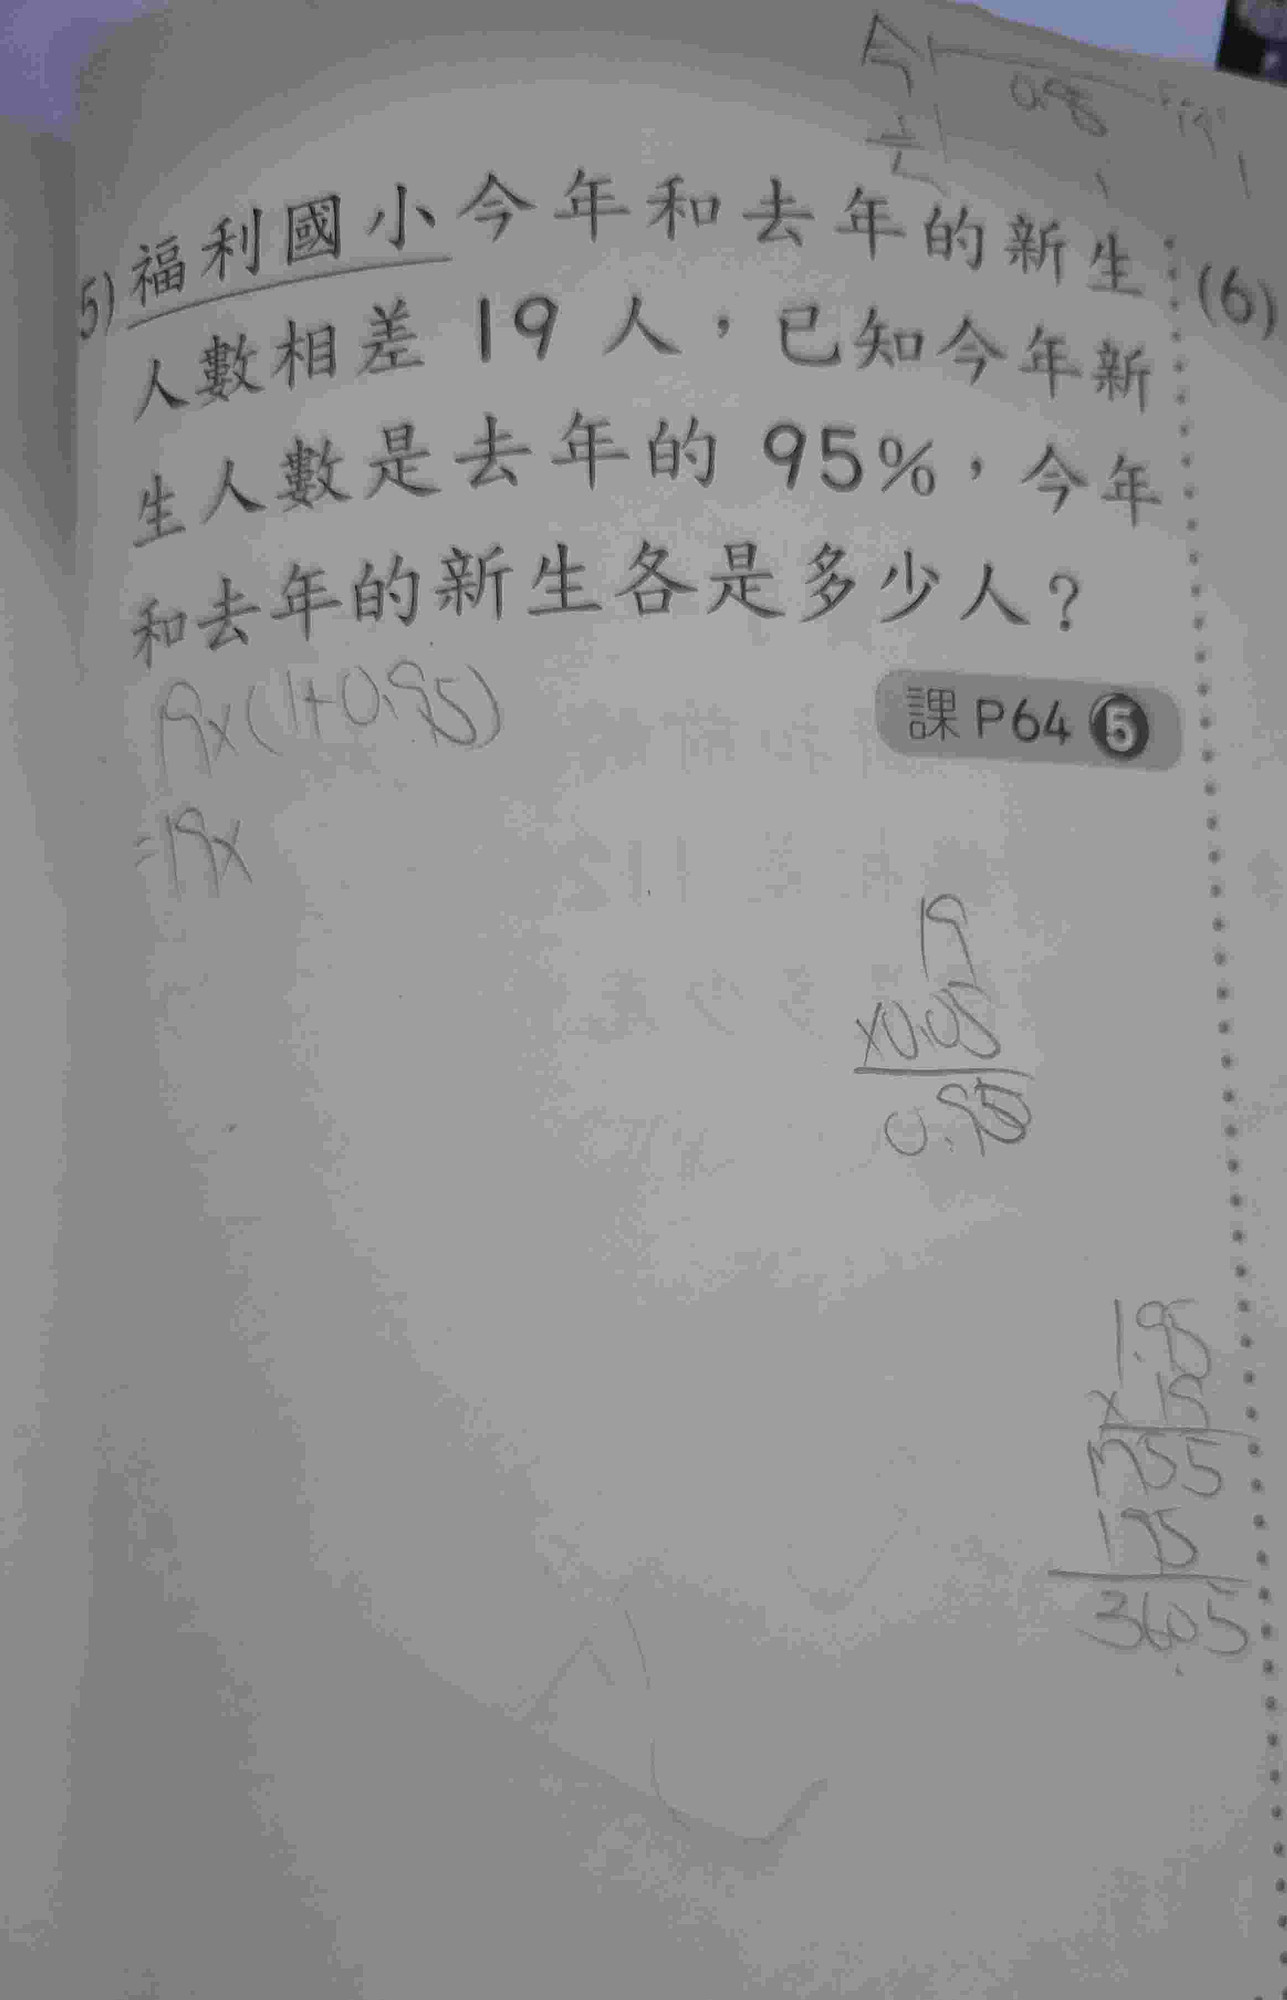 今
0.95 19
去
1
5) 福利國小今年和去年的新生
人數相差 19 人，已知今年新
生人數是去年的 95%，今年
和去年的新生各是多少人？
課 P64 5
(6)
19×(1+0.95)
=19×
19
×0.05
0.95
1.95
× 19
1755
195
3605